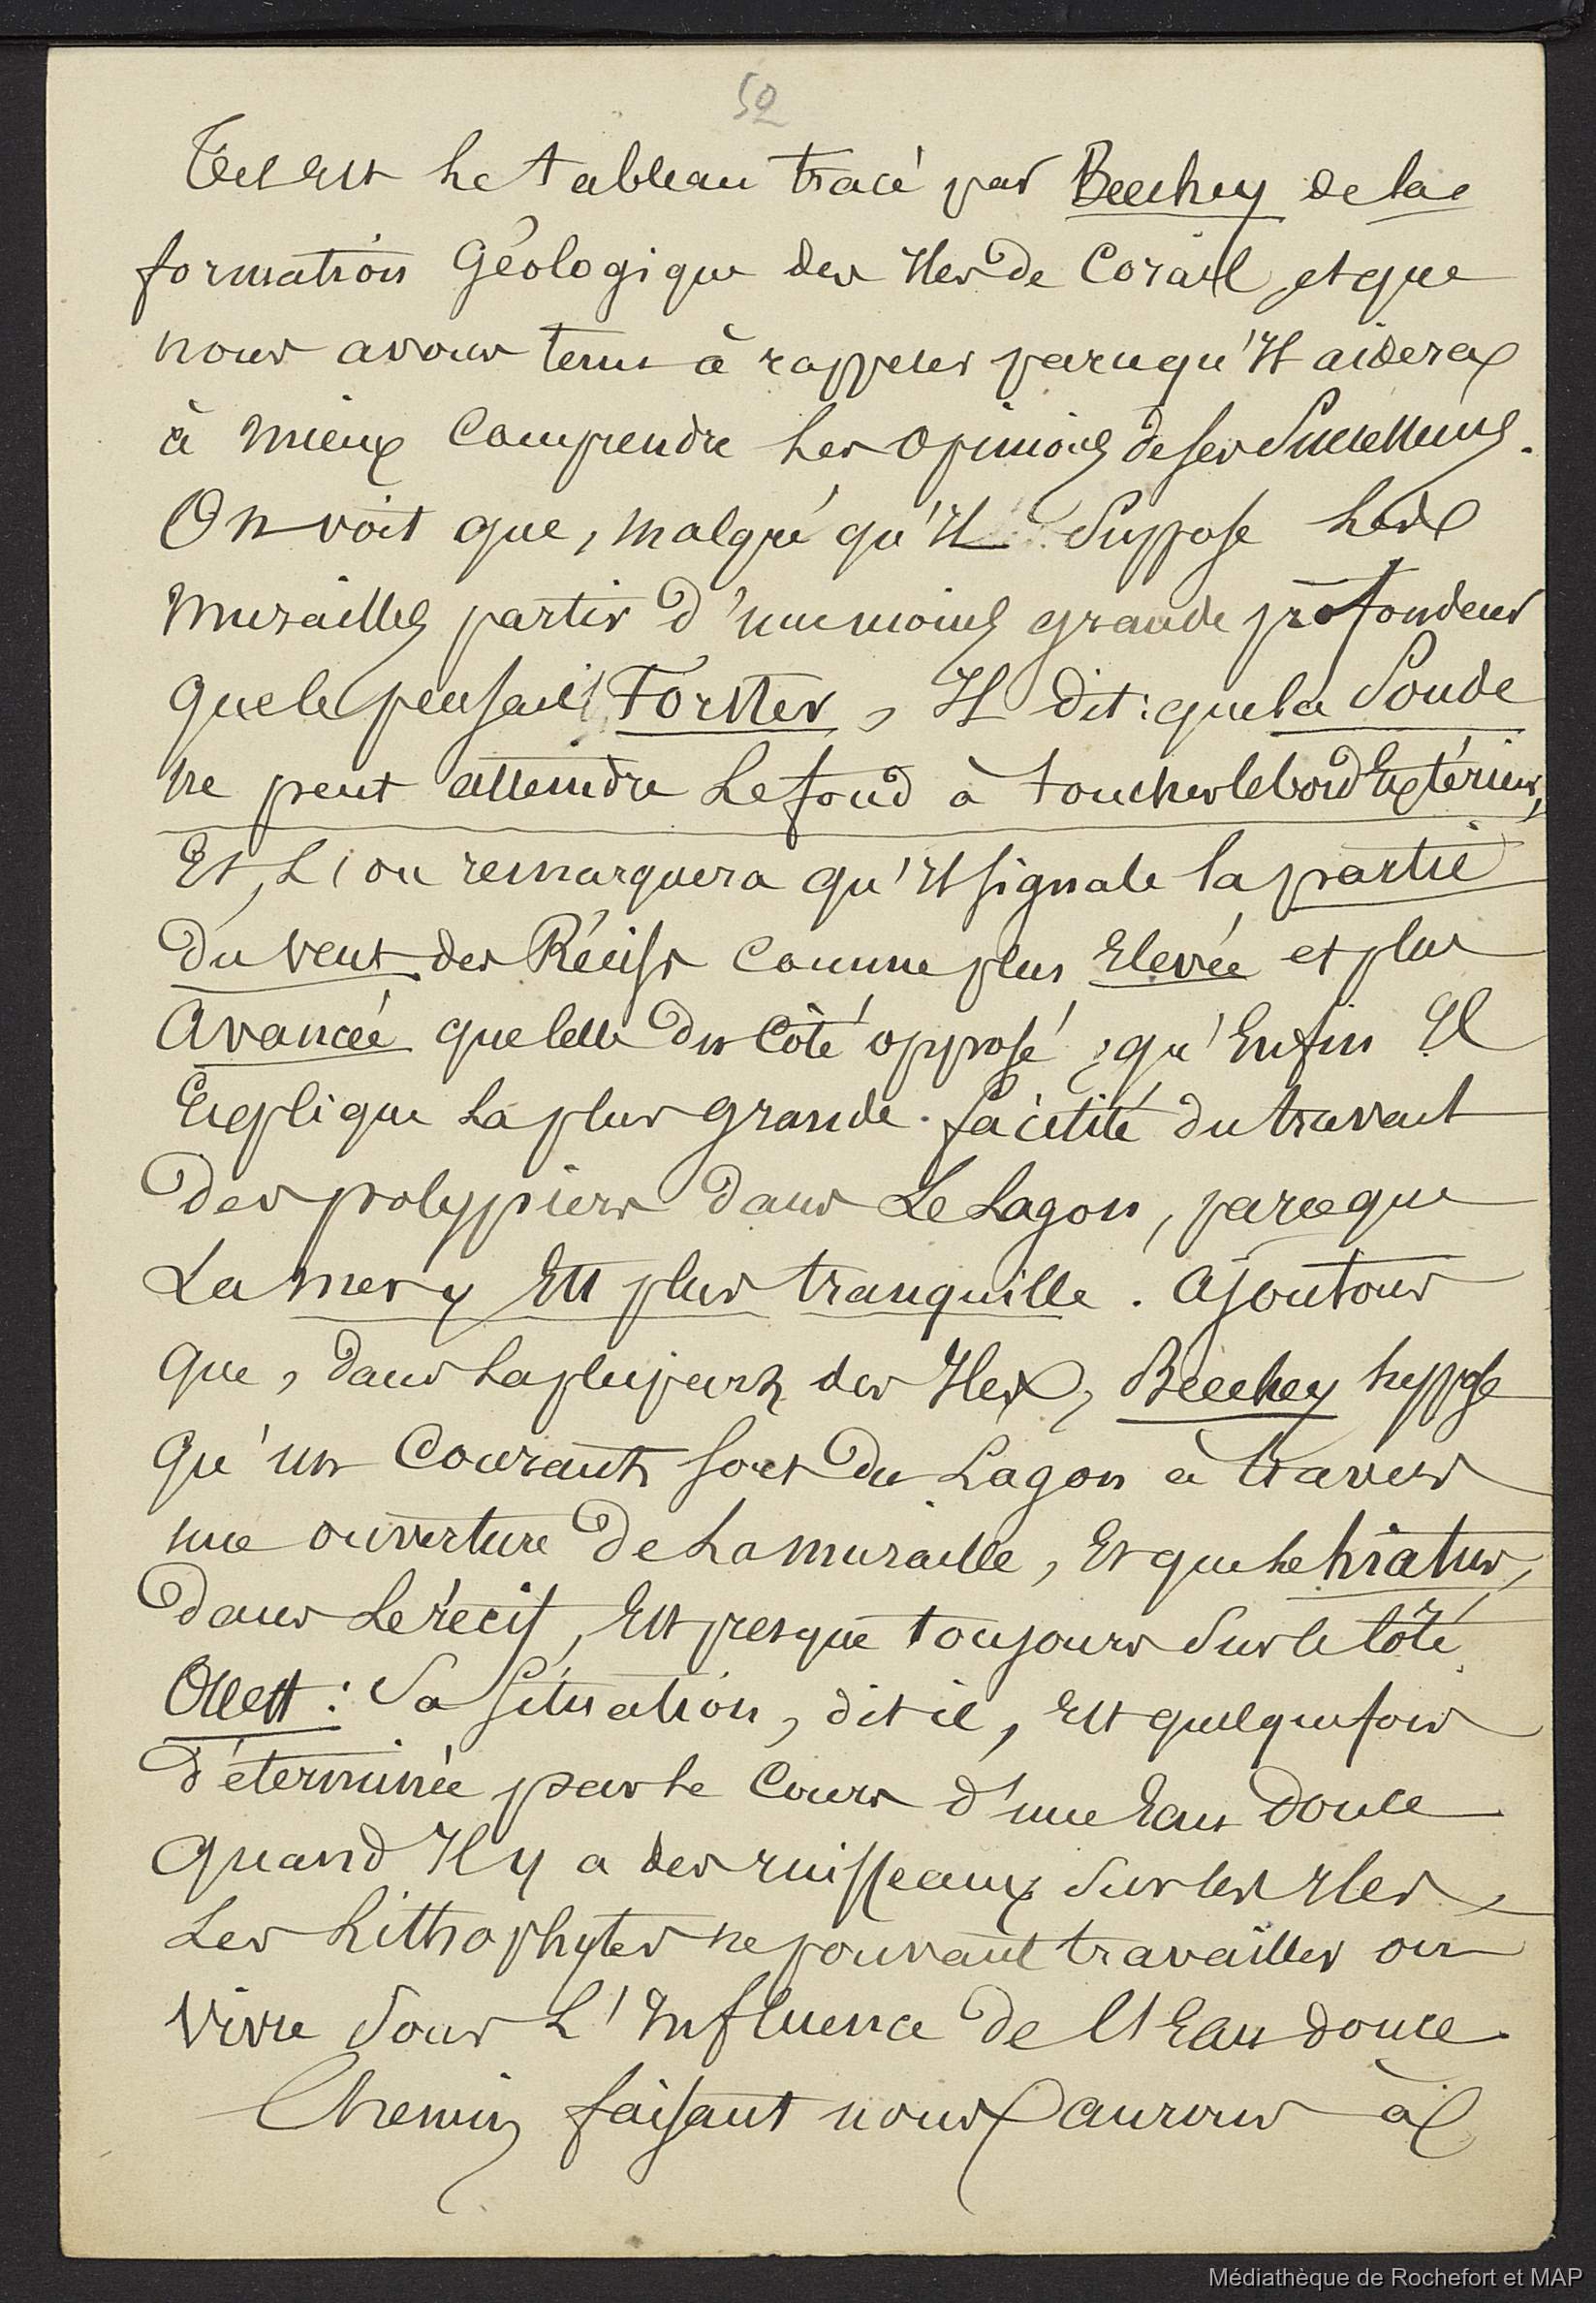 52
Tel est le tableau tracé par Beechey de la
formation Géologique des Iles de Corail, et que
nous avons tenu à rappeler parcequ'Il aidera
à mieux Comprendre les opinions de ses Successeurs.
On voit que, malgré qu'Il Suppose les
Murailles partir d'une moins grande profondeur
que le pensait Forster, Il dit: que la Sonde
ne peut atteindre le fond à toucher le bord Extérieur,
Et, L'on remarquera qu'Il signale la partie
du vent des Récifs Comme plus Elevée et plus
Avancée que celle du Côté opposé; qu'Enfin Il
Explique la plus grande facilité du travail
des polypiers dans Le Lagon, parceque
La mer y Est plus tranquille. Ajoutons
que, dans la plupart des Iles, Beechey suppose
qu'un Courant sort du Lagon à travers
une ouverture de La muraille, Et que le hiatus,
dans Le récif, Est presque toujours Sur le Côté
Ouest: Sa situation, dit il, Est quelquefois
déterminée par le Cours d'une Eau Douce
quand Il y a des ruisseaux Sur les Iles,
Les Lithophytes ne pouvant travailler ou
vivre Sous L'Influence de l'Eau douce.
Chemin faisant nous aurons à
Médiathèque de Rochefort et MAP